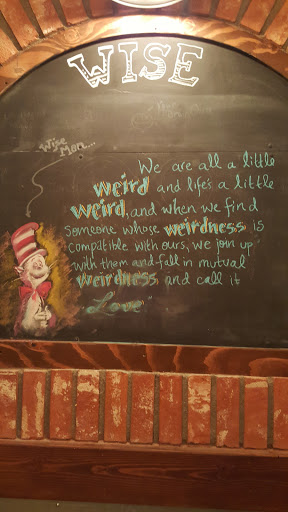 WISE
Wise
Man...
We are all a little
weird and life's a little
weird, and when we find
someone whose weirdness is
compatible with ours, we join up
with them and fall in mutual
weirdness and call it
"Love"